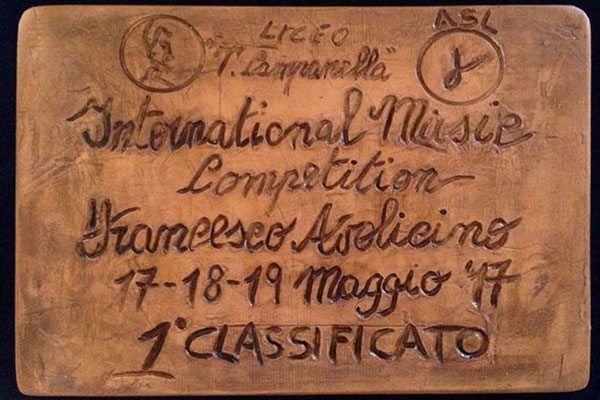 LICEO
"T. Campanella"
ASL
International Music
Competition
Francesco Avolicino
17-18-19 Maggio '17
1° CLASSIFICATO